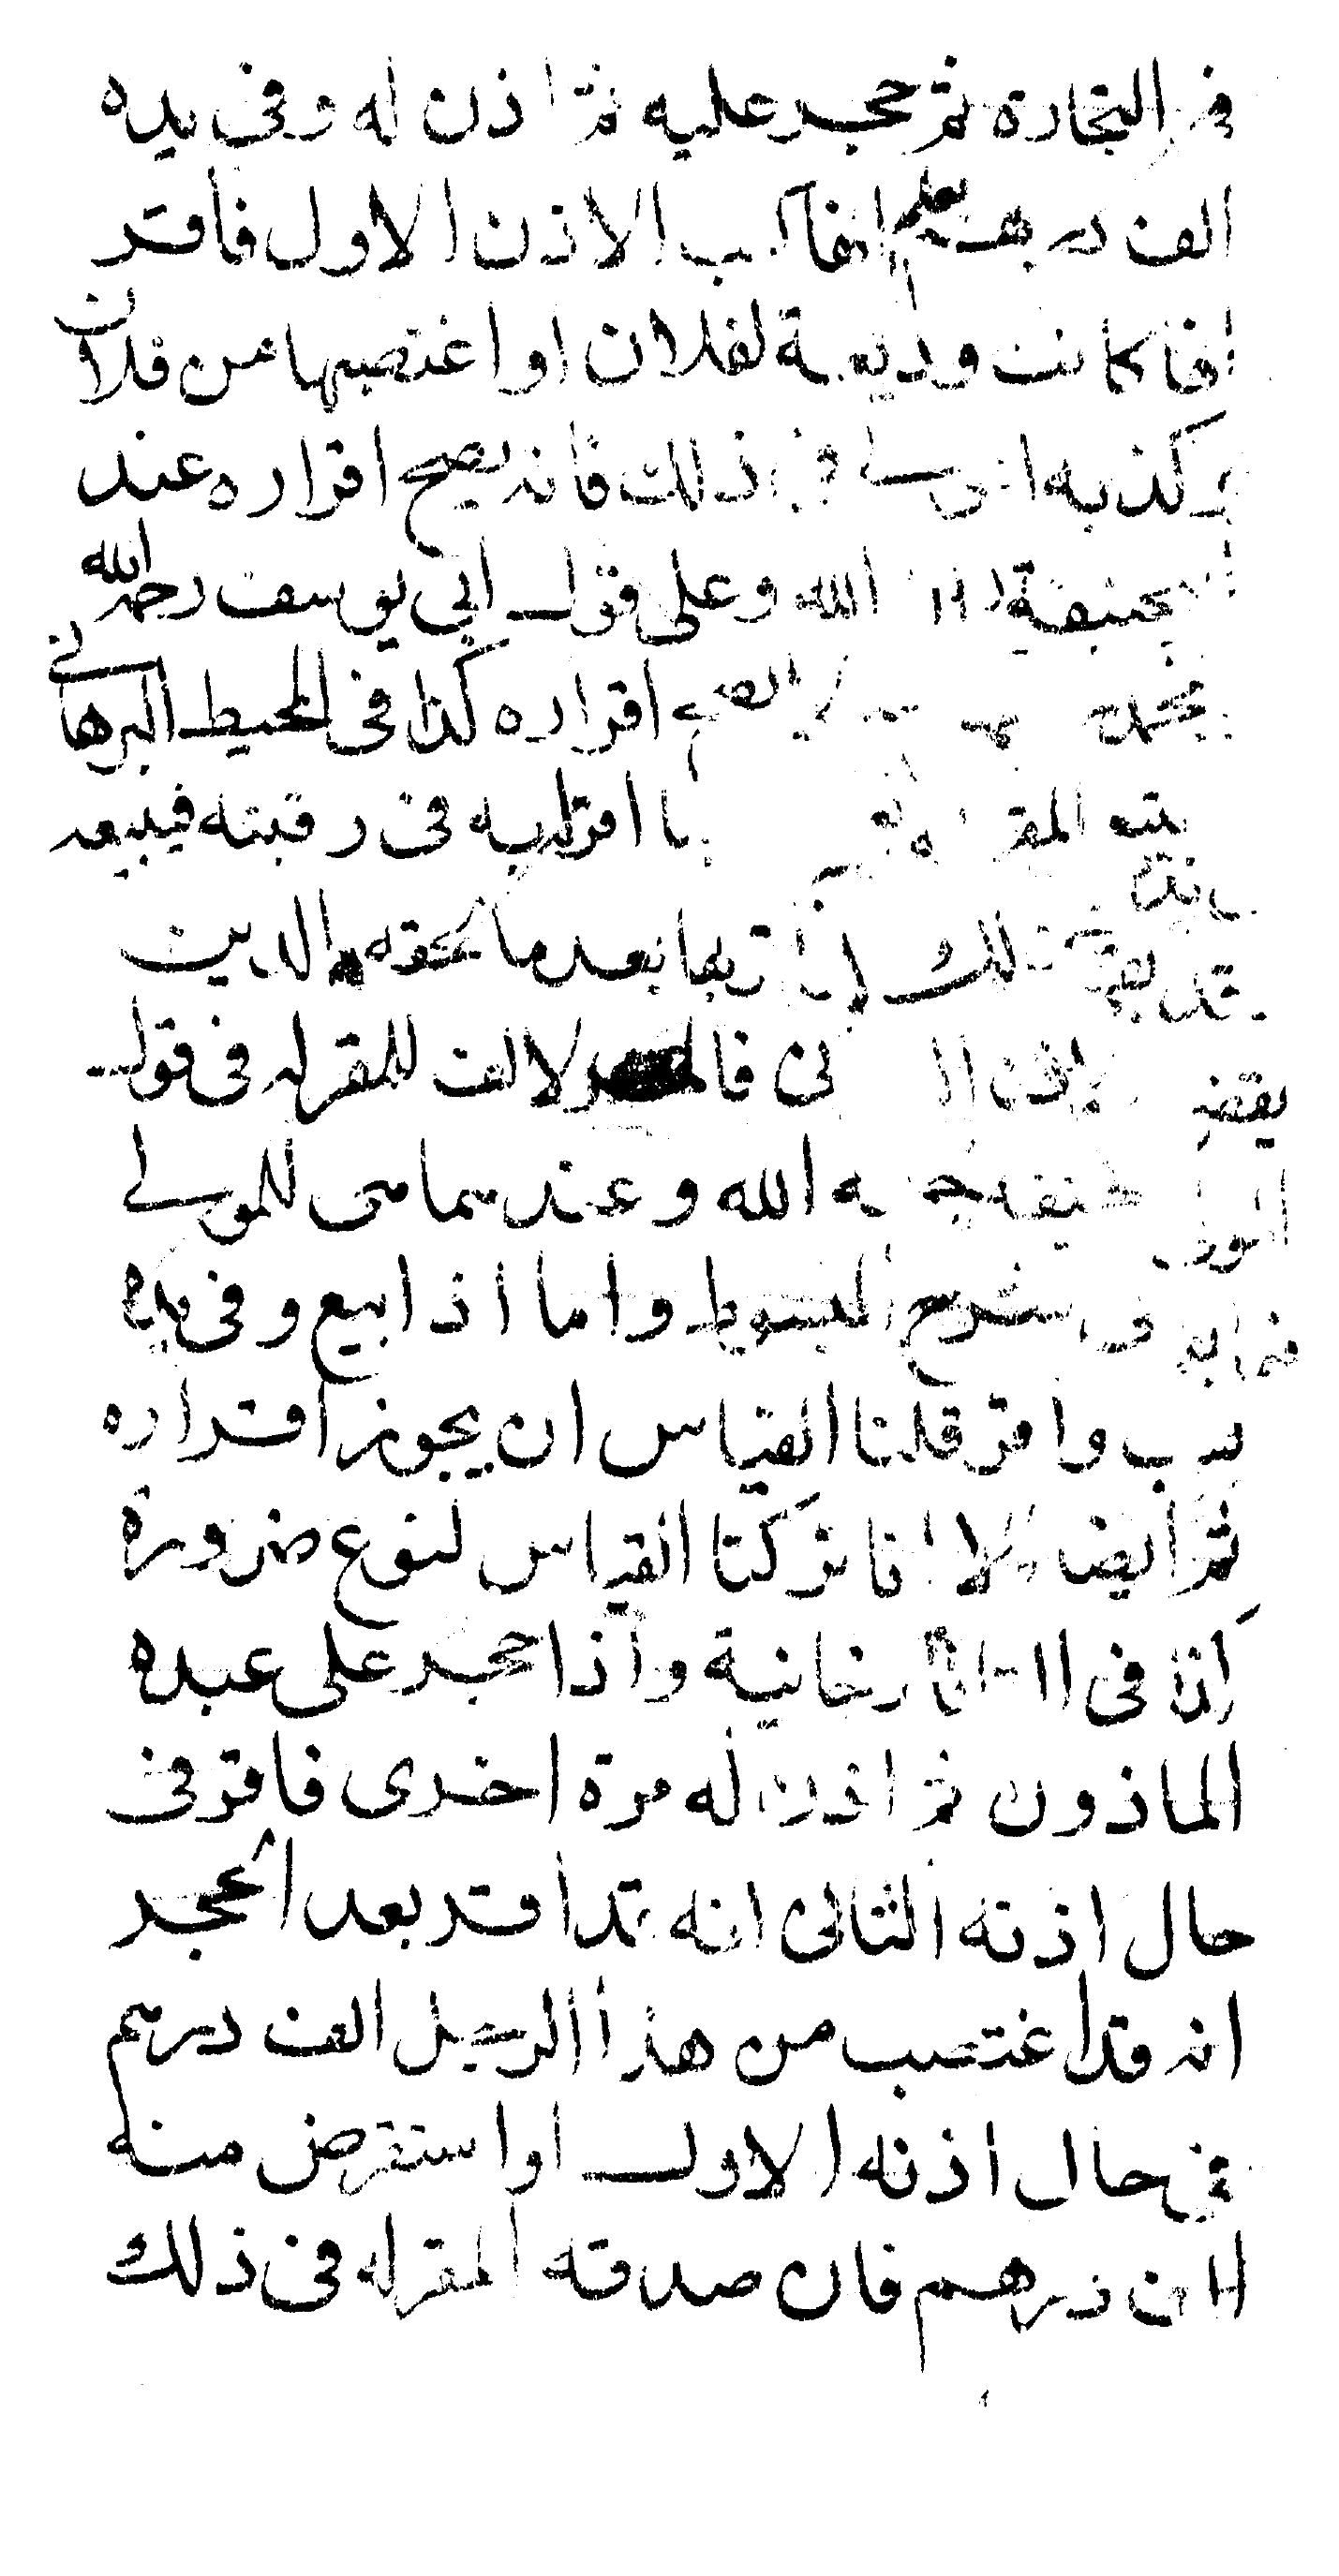 في التجارة ثم حجر عليه ثم اذن له وفي يده
الف درهم يعلم انها كسب الاذن الاول فاقر
انها كانت وديعة لفلان او اغتصبها من فلان
وكذبه المولى في ذلك فانه يصح اقراره عند
ابي حنيفة رحمه الله وعلى قول ابي يوسف رحمه الله
محمد لا يصح اقراره كذا في المحيط البرهاني
يتبع المقر له بما اقر له به في رقبته فيبيعه
ذلك بعدما لحقه الدين
فالالف للمقر له في قول
حنيفة رحمه الله وعندهما هي للمولى
في شرح المبسوط واما اذا بيع وفي يده
كسب واقر قلنا القياس ان يجوز اقراره
ثم ايضا الا انا تركنا القياس لنوع ضرورة
كذا في التاتارخانية واذا حجر على عبده
الماذون ثم اذن له مرة اخرى فاقر في
حال اذنه الثاني انه قد اقر بعد الحجر
انه قد اغتصب من هذا الرجل الف درهم
في حال اذنه الاول او استقرض منه
الف درهم فان صدقه المقر له في ذلك